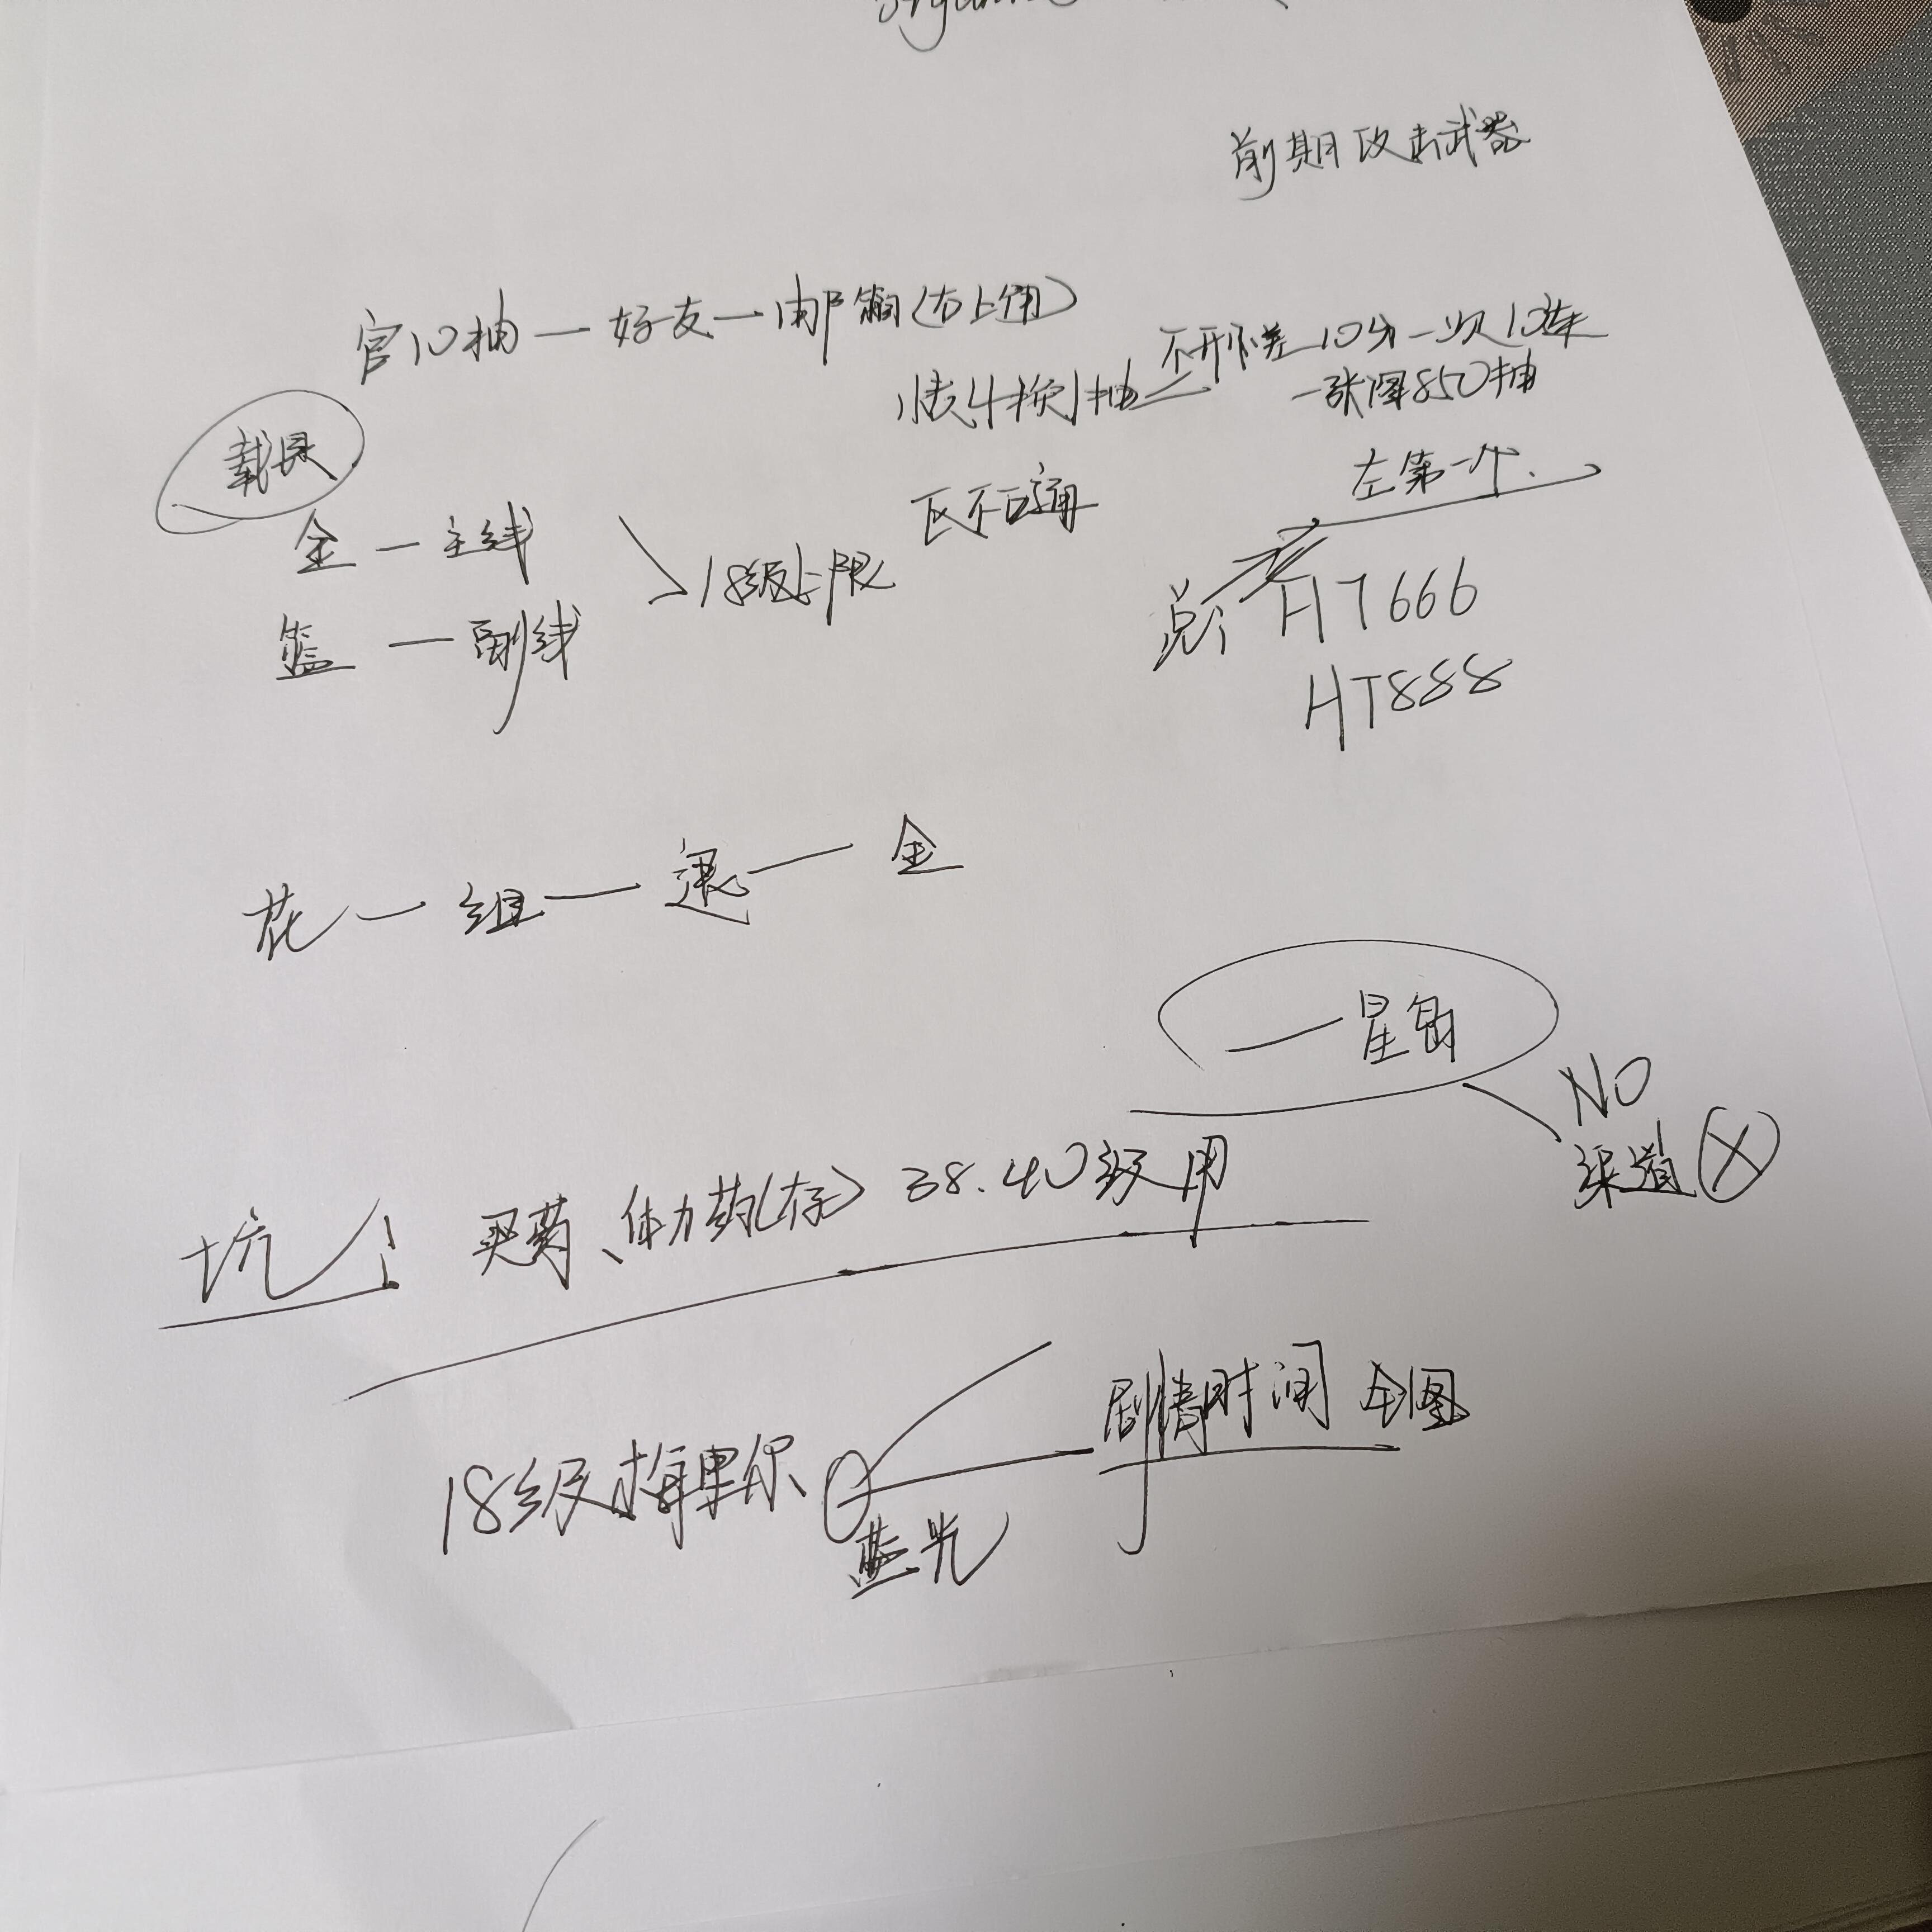 前期攻击武器
官10抽一好友一邮箱(右上角)
换1抽 不开 10分一次10连
一张 850抽
载具
左第一个.
区不互通
金一主线
18级上限
蓝一副线
兑 HT666
HT888
花一组一 一金
一星
NO
渠道
坑 买药、体力药(存) 38.40级用
剧情时间 全图
18级梅里尔
蓝光